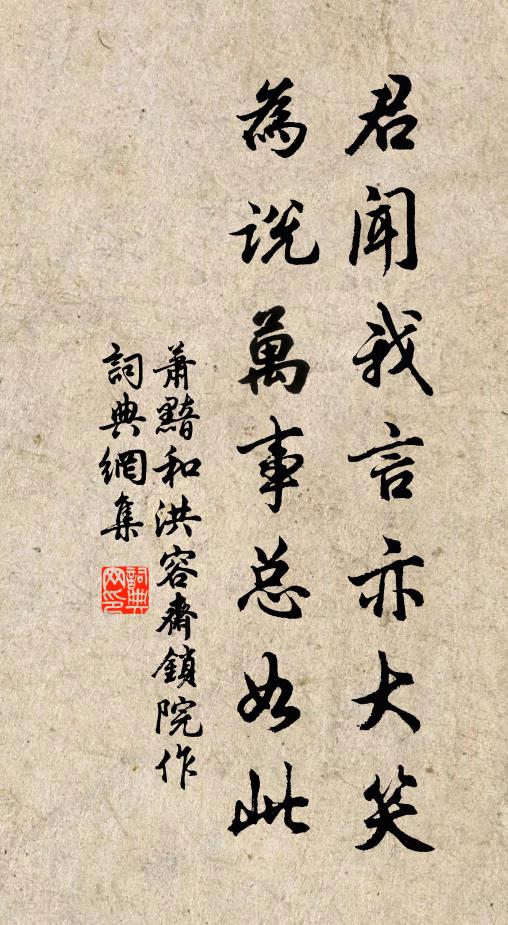 君聞我言亦大笑
為説萬事总如此
蕭黯和洪容齋鎖院作
詞典網集
詞典網印